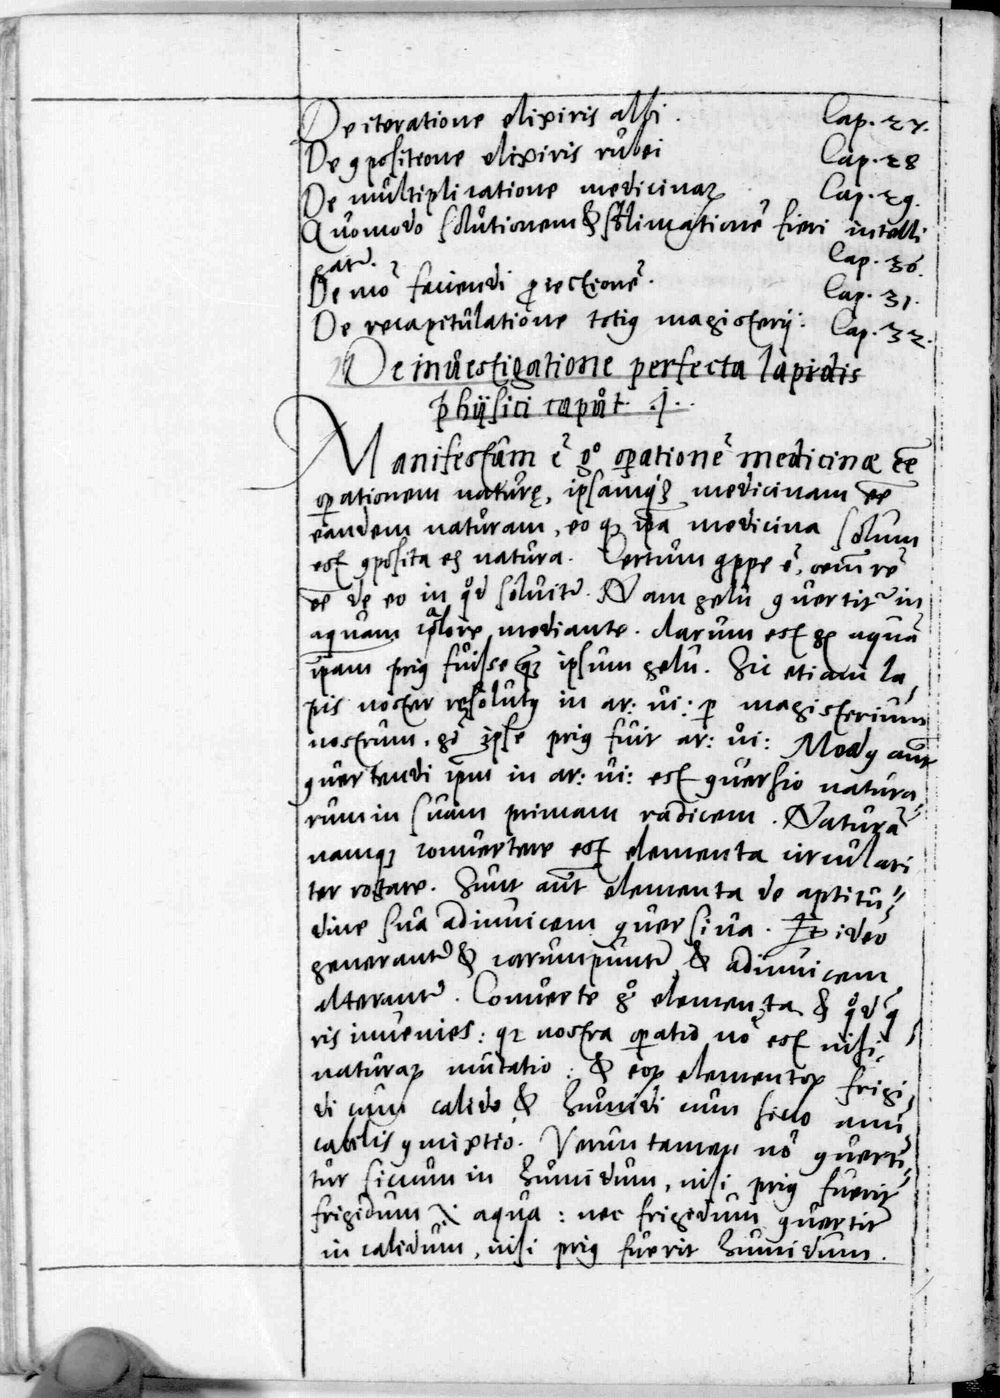 De iteratione elixiris albi. Cap. 27.
De ꝯpositione elixiris rubei Cap. 28
De multiplicatione medicinaꝝ Cap. 29.
Quomodo solutionem & sublimationē fieri intelli
gatr̄. Cap. 30.
De mō faciendi ꝓiectionē. Cap. 31.
De recapitulatione totiꝰ magisterij: Cap. 32.
De inuestigatione perfecta lapidis
phijsici caput .j.
Manifestum ē gº oꝑationē medicinæ eē
oꝑationem naturę, ipsamqꝫ medicinam eē
eandem naturam, eo qꝫ ip̄a medicina solum
est ꝯposita ex natura. Certum quippe ē, oem̄ rē
eē de eo in qd̊ soluitr̄. Nam gelu ꝯuertitr̄ in
aquam calore mediante. clarum est gº aquā
ip̄am priꝰ fuisse qꝫ ipsum gelu. Sic etiam la,
pis noster resolutꝰ in ar: ui: ꝑ magisterium
nostrum. gº ipse priꝰ fuit ar: ui: Modꝰ aut̄
ꝯuertendi ip̄m in ar: ui: est ꝯuersio natura,
rum in suam primam radicem. Naturā
namqꝫ conuertere est elementa circulari
ter rotare. Sunt aut̄ elementa de aptitu
dine sua adinuicem ꝯuersiua. Et ideo
generantr̄ & corrumpuntr̄ & adinuicem
alterantr̄. Conuerte gº elementa & qd̊ q̄
ris inuenies: qꝛ nostra oꝑatio nō est nisi,
naturaꝝ mutatio: & eoꝝ elementoꝝ frigi,
di cum calido & humidi cum sicco ami,
cabilis ꝯmixtio. Verum tamen nō ꝯuerti,
tur siccum in humidum, nisi priꝰ fuerit
frigidum aqua: nec frigidum ꝯuertitr̄
in calidum, nisi priꝰ fuerit humidum.